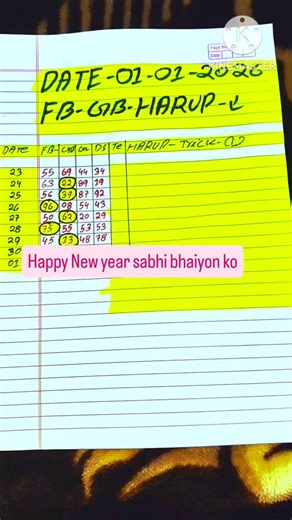 DATE-01-01-2026
FB-GB-HARUP-
DATE FB- GZB GL DS TC HARUP-TRICK-02
23 55 69 44 34
24 63 22 89 19
25 56 39 87 92
26 96 08 54 43
27 50 62 20 29
28 75 55 53 53
29 45 73 48 78
30
01
Happy New year sabhi bhaiyon ko